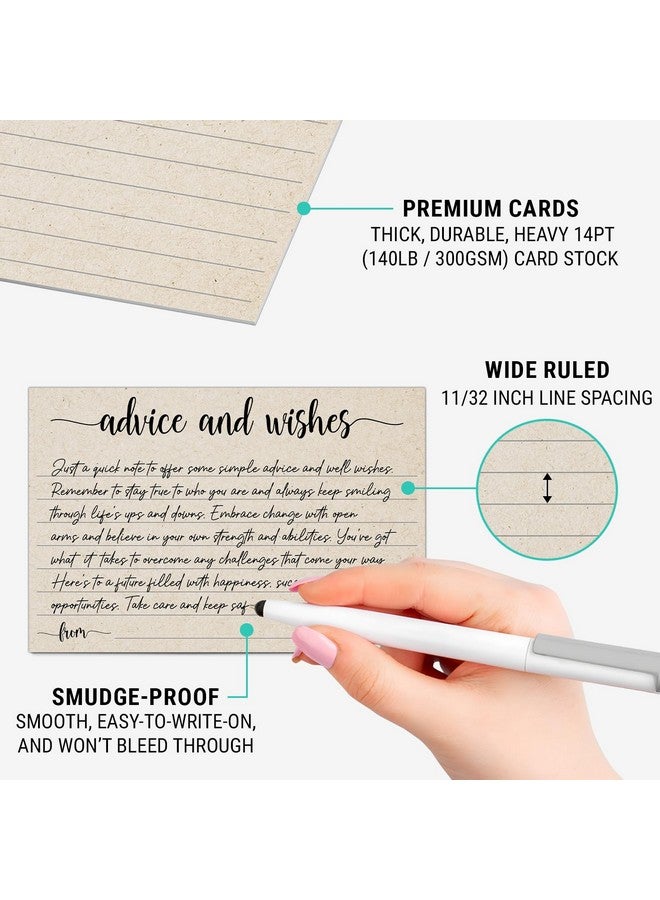 PREMIUM CARDS
THICK, DURABLE, HEAVY 14PT
(140LB / 300GSM) CARD STOCK
WIDE RULED
11/32 INCH LINE SPACING
advice and wishes
Just a quick note to offer some simple advice and well wishes.
Remember to stay true to who you are and always keep smiling
through life's ups and downs. Embrace change with open
arms and believe in your own strength and abilities. You've got
what it takes to overcome any challenges that come your way
Here's to a future filled with happiness,
opportunities. Take care and keep saf
from
SMUDGE-PROOF
SMOOTH, EASY-TO-WRITE-ON,
AND WON'T BLEED THROUGH